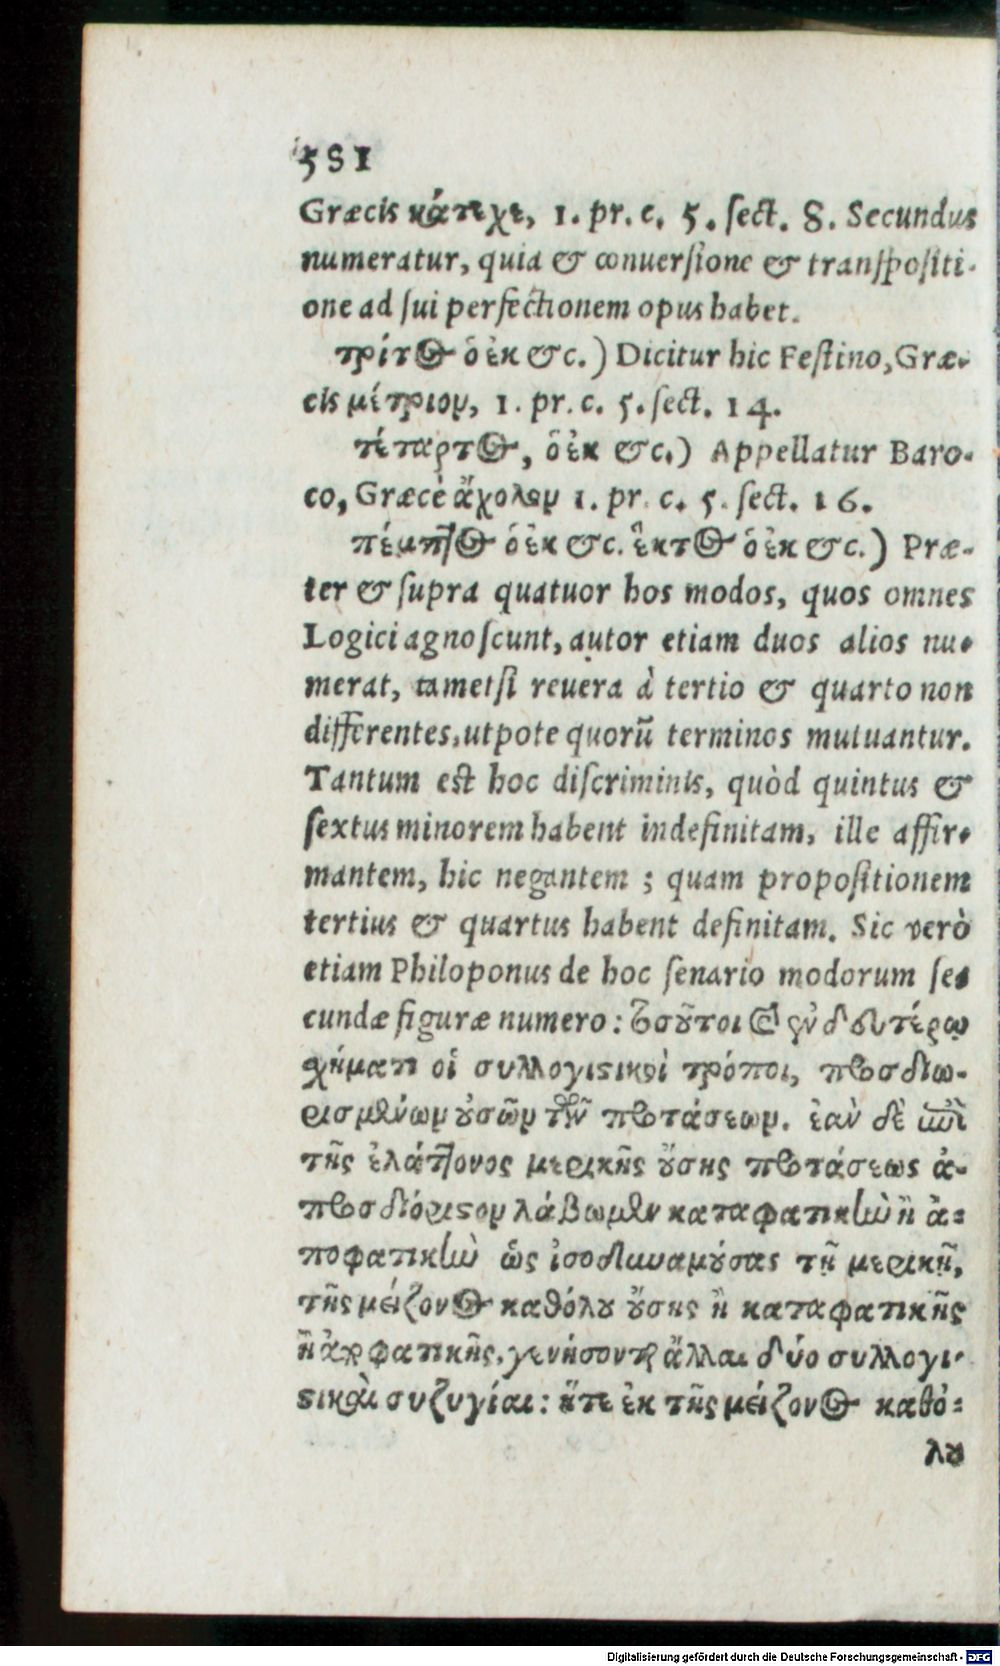 581
Græcis κάτεχε, 1. pr. c. 5. ſect. 8. Secundus
numeratur, quia & conuerſione & tranſpoſiti-
one ad ſui perfectionem opus habet.
τρίτος ὁ ἐκ &c.) Dicitur hic Feſtino, Græ-
cis μέτριον, 1. pr. c. 5. ſect. 14.
τέταρτος, ὁ ἐκ &c.) Appellatur Baro-
co, Græcè ἄχολον 1. pr. c. 5. ſect. 16.
πέμπτος ὁ ἐκ &c. ἕκτος ὁ ἐκ &c.) Præ-
ter & ſupra quatuor hos modos, quos omnes
Logici agnoſcunt, autor etiam duos alios nu-
merat, tametſi reuera à tertio & quarto non
differentes, utpote quorũ terminos mutuantur.
Tantum eſt hoc diſcriminis, quòd quintus &
ſextus minorem habent indefinitam, ille affir-
mantem, hic negantem ; quam propoſitionem
tertius & quartus habent definitam. Sic verò
etiam Philoponus de hoc ſenario modorum ſe-
cundæ figuræ numero: τοσοῦτοι ἐν δευτέρῳ
χήματι οἱ συλλογιστικοὶ τρόποι, προσδιω-
ρισμένων οὐσῶν τῶν προτάσεων. ἐὰν δὲ ἐπὶ
τῆς ἐλάττονος μερικῆς οὔσης προτάσεως ἀ-
προσδιόριστον λάβωμεν καταφατικὴν ἢ ἀ-
ποφατικὴν ὡς ἰσοδυναμούσας τῇ μερικῇ,
τῆς μείζονος καθόλου οὔσης ἢ καταφατικῆς
ἢ ἀποφατικῆς, γενήσονται ἄλλαι δύο συλλογι-
στικαὶ συζυγίαι: ἥτε ἐκ τῆς μείζονος καθό-
λου
Digitalisierung gefördert durch die Deutsche Forschungsgemeinschaft - DFG